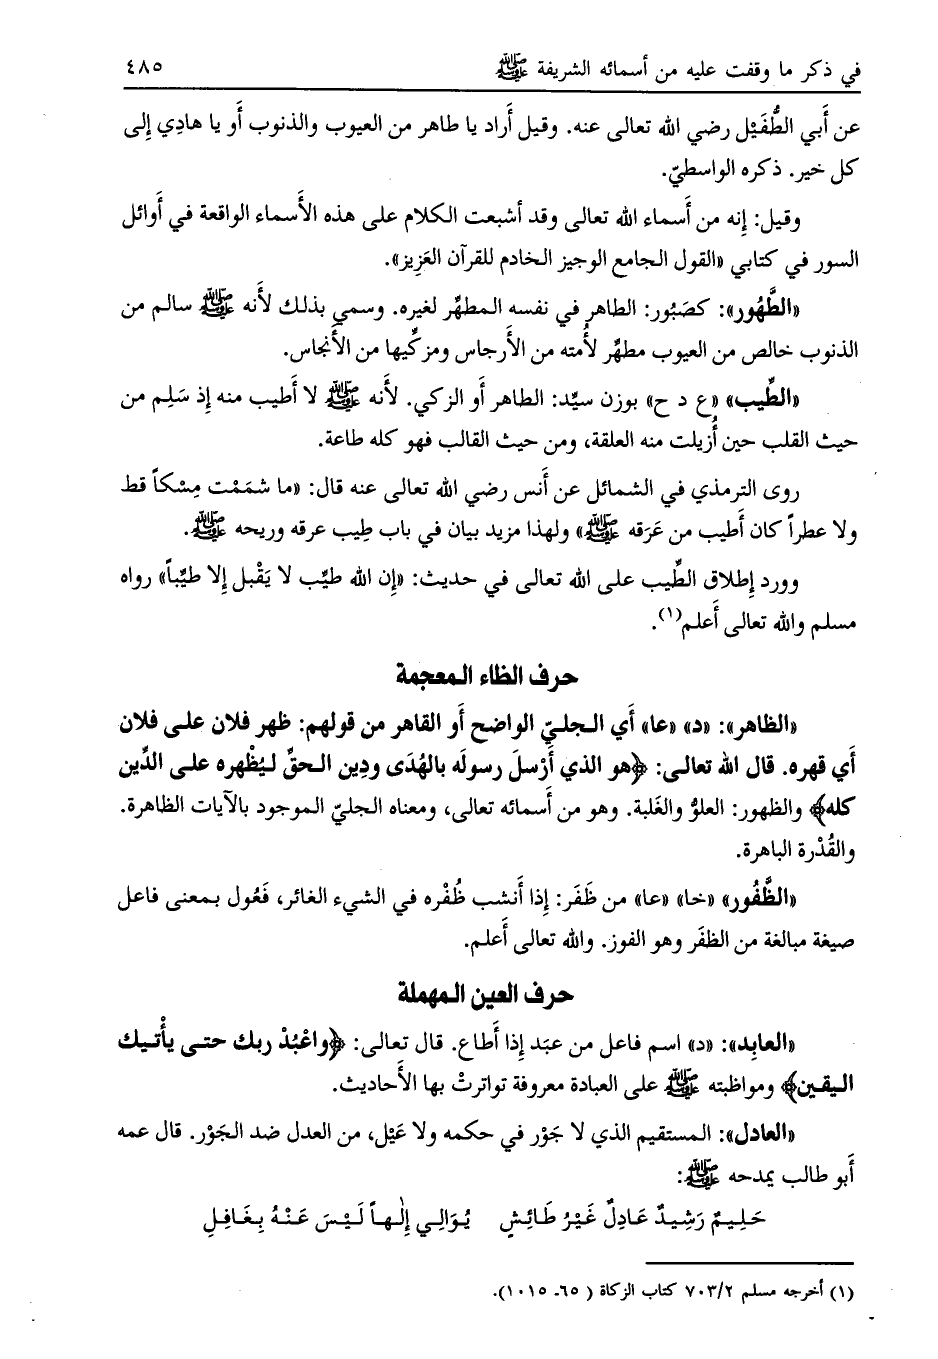 في ذكر ما وقفت عليه من أسمائه الشريفة ﷺ ٤٨٥
عن أَبي الطُّفَيْل رضي الله تعالى عنه. وقيل أَراد يا طاهر من العيوب والذنوب أَو يا هادِي إِلى
كل خير. ذكره الواسطيّ.
وقيل: إِنه من أَسماء الله تعالى وقد أشبعت الكلام على هذه الأَسماء الواقعة في أَوائل
السور في كتابي «القول الجامع الوجيز الخادم للقرآن العَزِيز».
«الطَّهُور»: كصَبُور: الطاهر في نفسه المطهِّر لغيره. وسمي بذلك لأَنه ﷺ سالم من
الذنوب خالص من العيوب مطهِّر لأُمته من الأَرجاس ومزكِّيها من الأَنجاس.
«الطِّيب» «ع د ح» بوزن سيِّد: الطاهر أَو الزكي. لأَنه ﷺ لا أَطيب منه إِذ سَلِم من
حيث القلب حين أُزيلت منه العلقة، ومن حيث القالب فهو كله طاعة.
روى الترمذي في الشمائل عن أَنس رضي الله تعالى عنه قال: «ما شمَمْت مِسْكاً قط
ولا عطراً كان أَطيب من عَرَقه ﷺ» ولهذا مزيد بيان في باب طِيب عرقه وريحه ﷺ.
وورد إِطلاق الطِّيب على الله تعالى في حديث: «إِن الله طيِّب لا يَقْبل إِلا طيِّباً» رواه
مسلم والله تعالى أَعلم(١).
حرف الظاء المعجمة
«الظاهر»: «د» «عا» أَي الجليّ الواضح أَو القاهر من قولهم: ظهر فلان على فلان
أَي قهره. قال الله تعالى: ﴿هو الذي أَرْسلَ رسولَه بالهُدَى ودِين الحقِّ ليُظْهره على الدِّين
كله﴾ والظهور: العلوُّ والغَلبة. وهو من أَسمائه تعالى، ومعناه الجليّ الموجود بالآيات الظاهرة.
والقُدْرة الباهرة.
«الظَّفُور» «خا» «عا» من ظَفَر: إِذا أَنشب ظُفْره في الشيء الغائر، فَعُول بمعنى فاعل
صيغة مبالغة من الظفَر وهو الفوز. والله تعالى أَعلم.
حرف العين المهملة
«العابِد»: «د» اسم فاعل من عبَد إِذا أَطاع. قال تعالى: ﴿واعْبُدْ ربك حتى يأْتيك
اليقين﴾ ومواظبته ﷺ على العبادة معروفة تواترتْ بها الأَحاديث.
«العادل»: المستقيم الذي لا جَوْر في حكمه ولا عَيْل، من العدل ضد الجَوْر. قال عمه
أَبو طالب يمدحه ﷺ:
حَلِيمٌ رَشِيدٌ عَادِلٌ غَيْرُ طَائِشٍ يُوَالِي إِلٰهاً لَيْسَ عَنْهُ بِغَافِلِ
(١) أخرجه مسلم ٧٠٣/٢ كتاب الزكاة (٦٥- ١٠١٥).